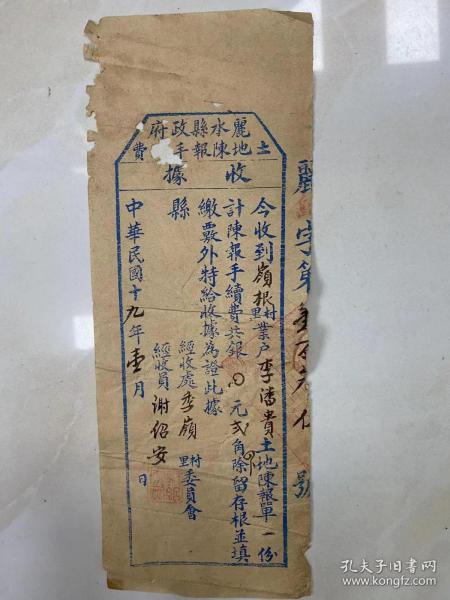 麗水縣政府
土地陳報手費
收據
今收到嶺根村里業户李潘貴土地陳報單一份
計陳報手續費共銀〇元弍角除留存根並填
繳覈外特給收據為證此據
縣
經收處李嶺村里委員會
經收員謝紹安
中華民國十九年壹月日
麗字第號
孔夫子旧书网
www.kongfz.com